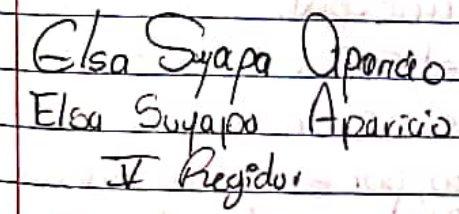 Elsa Suyapa Aparicio
Elsa Suyapa Aparicio
V Regidor